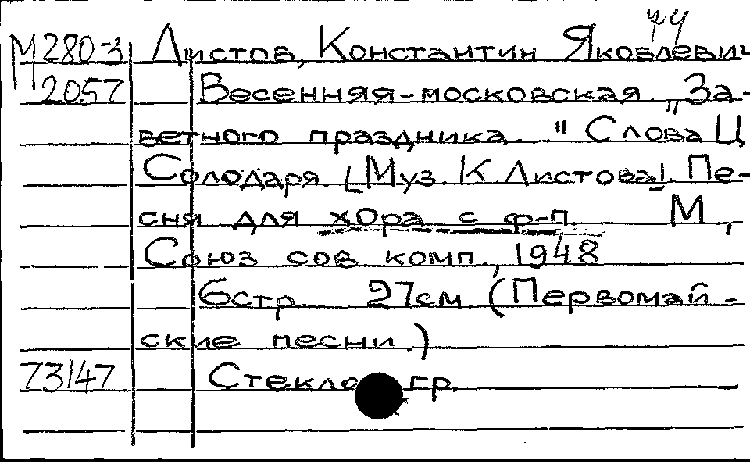 44
М 280-3 Листов, Константин Яковлевич
2057 Весенняя-московская „За-
ветного праздника." Слова Ц
Солодаря [Муз. К Листова]. Пе-
сня для хора с ф-п. М,
Союз сов комп., 1948
6стр. 27см (Первомай-
ские песни.)
73147 Стеклогр.